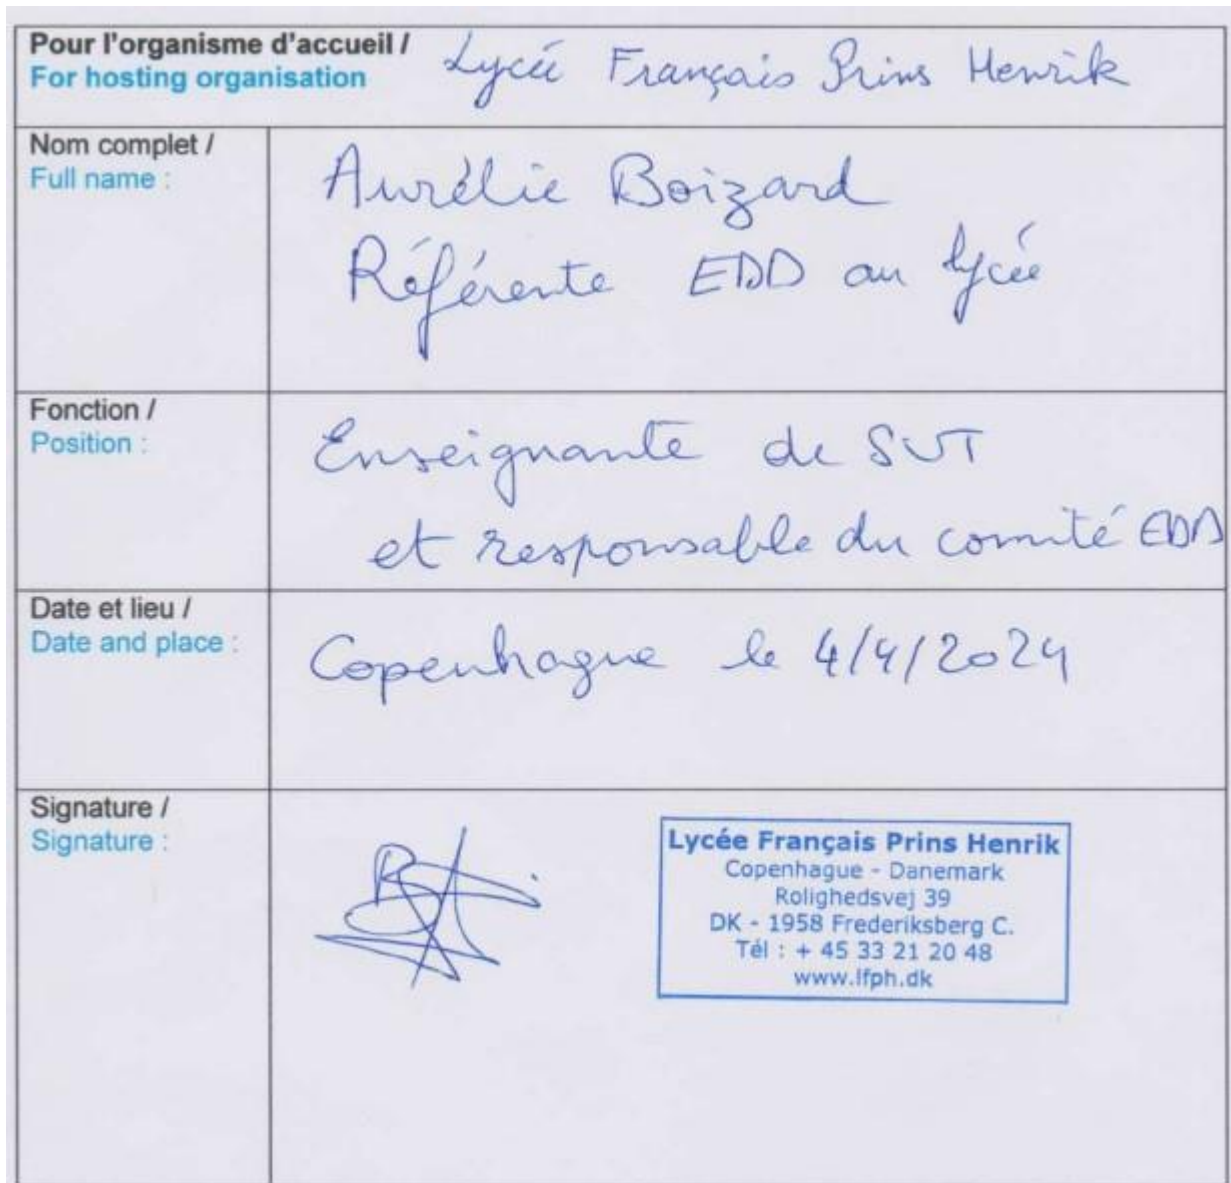 Pour l'organisme d'accueil / Lycée Français Prins Henrik
For hosting organisation
Nom complet /
Full name :
Aurélie Boizard
Référente EDD au lycée
Fonction /
Position :
Enseignante de SVT
et responsable du comité EDD
Date et lieu /
Date and place :
Copenhague le 4/4/2024
Signature /
Signature :
Lycée Français Prins Henrik
Copenhague - Danemark
Rolighedsvej 39
DK - 1958 Frederiksberg C.
Tél : + 45 33 21 20 48
www.lfph.dk